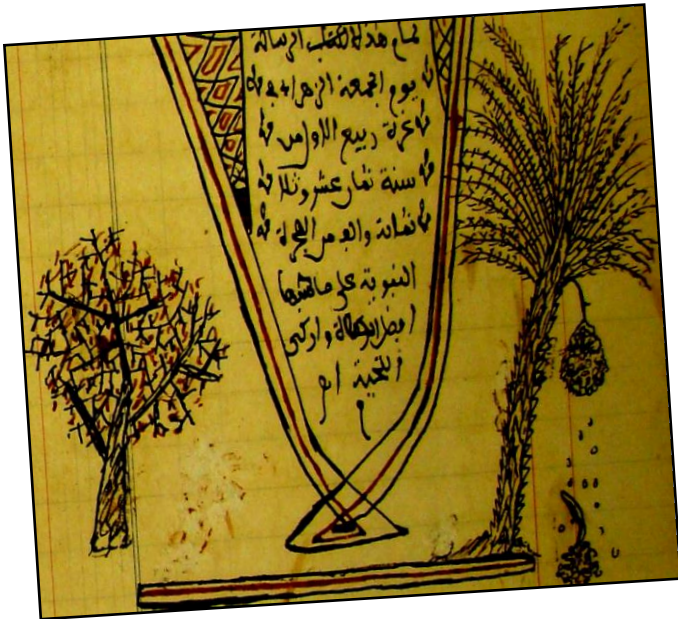 تمام هذا الكتاب الرسالة
يوم الجمعة الزهراء
غرة ربيع الاول من
سنة ثمان عشر وثلا
ثمائة والف من الهجرة
النبوية على صاحبها
افضل الصلاة وازكى
التحية اه